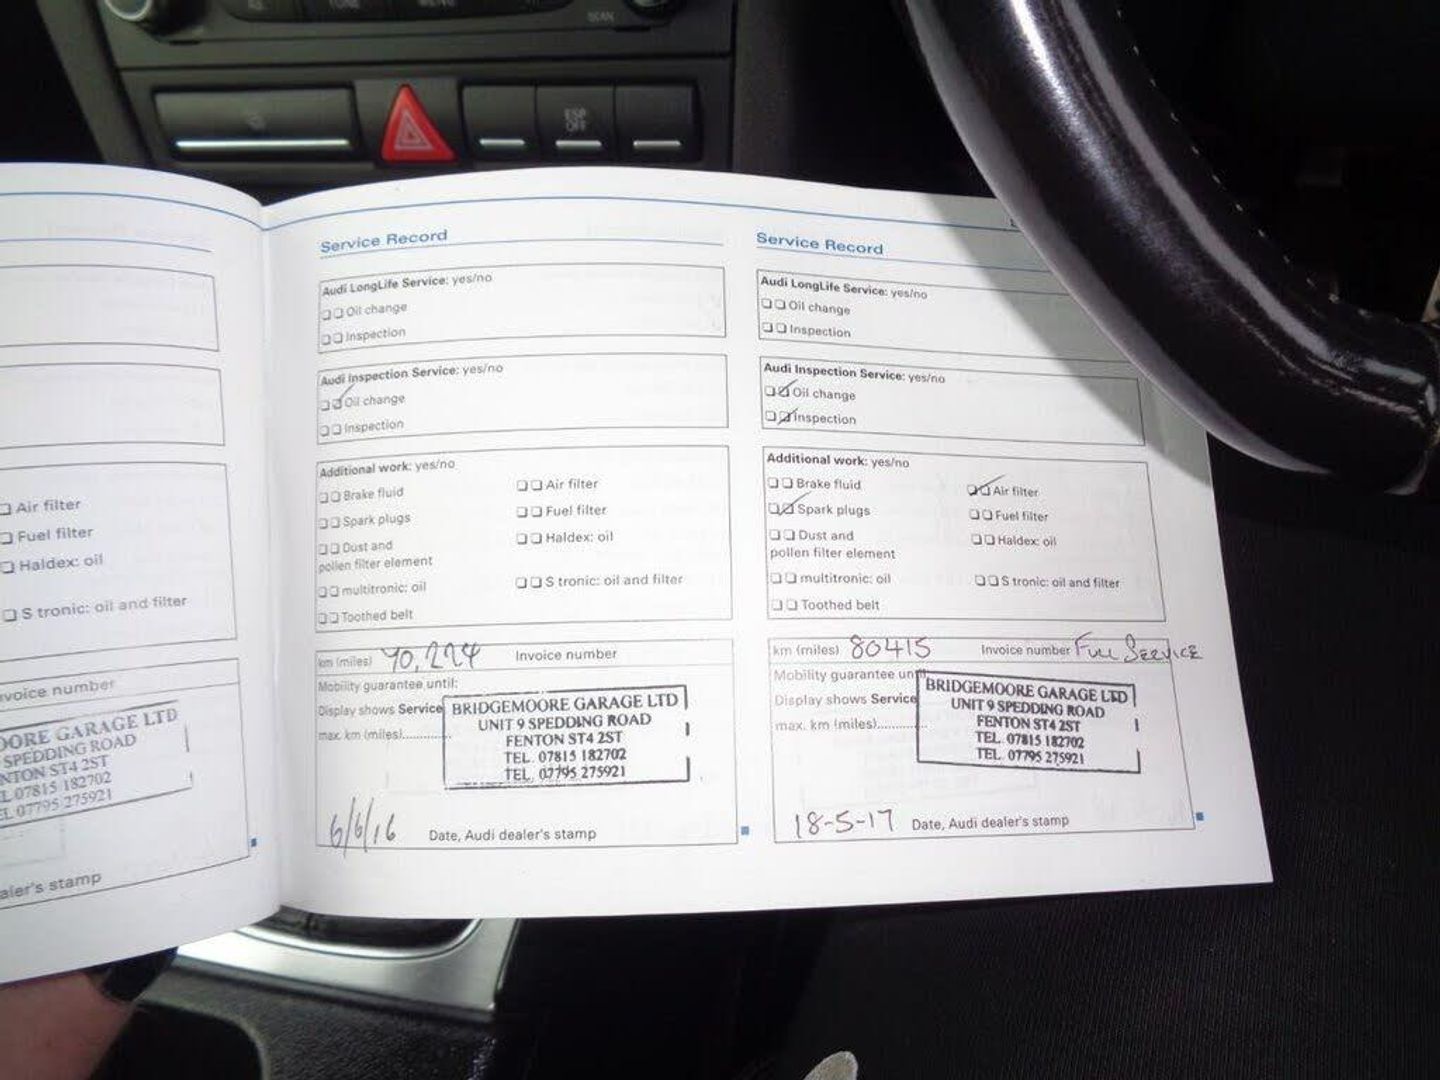 SCAN
ESP
OFF
Air filter
Fuel filter
Haldex: oil
S tronic: oil and filter
nvoice number
OORE GARAGE LTD
SPEDDING ROAD
NTON ST4 2ST
L 07815 182702
EL 07795 275921
aler's stamp
Service Record
Audi LongLife Service: yes/no
Oil change
Inspection
Audi Inspection Service: yes/no
Oil change
Inspection
Additional work: yes/no
Brake fluid
Air filter
Spark plugs
Fuel filter
Dust and
pollen filter element
Haldex: oil
multitronic: oil
S tronic: oil and filter
Toothed belt
km (miles) 70,224 Invoice number
Mobility guarantee until:
Display shows Service
max. km (miles)............
BRIDGEMOORE GARAGE LTD
UNIT 9 SPEDDING ROAD
FENTON ST4 2ST
TEL. 07815 182702
TEL. 07795 275921
6/6/16 Date, Audi dealer's stamp
Service Record
Audi LongLife Service: yes/no
Oil change
Inspection
Audi Inspection Service: yes/no
Oil change
Inspection
Additional work: yes/no
Brake fluid
Air filter
Spark plugs
Fuel filter
Dust and
pollen filter element
Haldex: oil
multitronic: oil
S tronic: oil and filter
Toothed belt
km (miles) 80415 Invoice number Full Service
Mobility guarantee un
Display shows Service
max. km (miles)............
BRIDGEMOORE GARAGE LTD
UNIT 9 SPEDDING ROAD
FENTON ST4 2ST
TEL. 07815 182702
TEL. 07795 275921
18-5-17 Date, Audi dealer's stamp